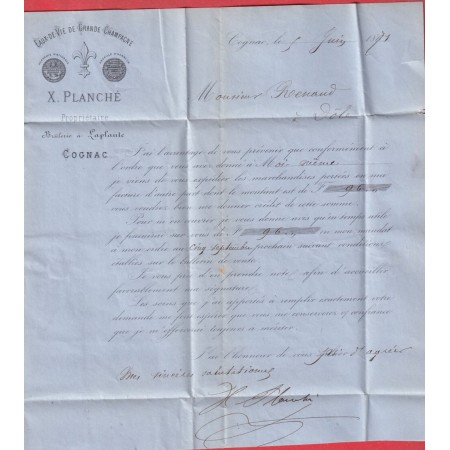 EAUX-DE-VIE DE GRANDE CHAMPAGNE
X. PLANCHÉ
Propriétaire
Laplante
COGNAC
Cognac, le 5 Juin 1871
Monsieur
à
J'ai l'avantage de vous prévenir que conformément à
l'ordre que vous avez donné à Moi même
je viens de vous expédier les marchandises portées en ma
facture d'autre part dont le montant est de F 96
vous voudrez bien me donner crédit de cette somme.
Pour m'en couvrir je vous donne avis qu'en temps utile
je fournirai sur vous de F 96 en mon mandat
à mon ordre au cinq septembre prochain suivant conditions
établies sur le bulletin de vente.
Je vous prie d'en prendre note, afin d'accueillir
favorablement ma signature.
Les soins que j'ai apportés à remplir exactement votre
demande me font espérer que vous me conserverez la confiance
que je m'efforcerai toujours à mériter.
J'ai l'honneur de vous prier d'agréer
Mes sincères salutations
X. Planché